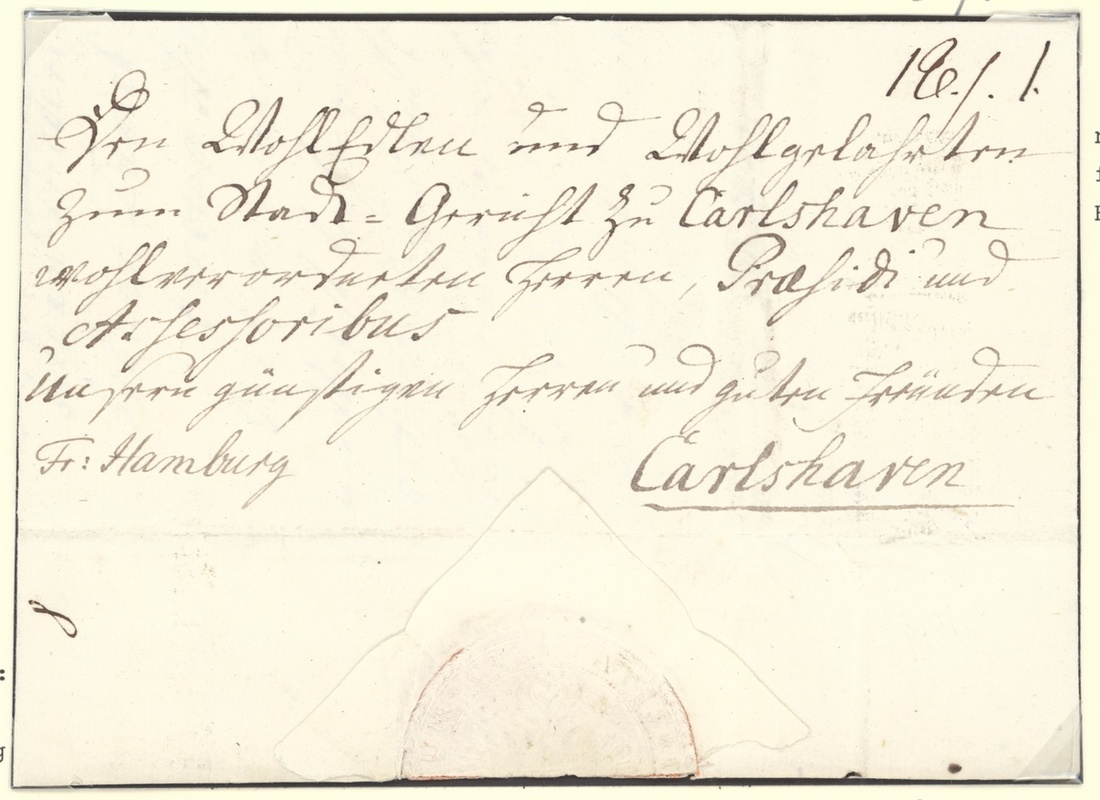 Den WohlEdlen und Wohlgelahrten
zum Stadt=Gericht zu Carlshaven
wohlverordneten Herren, Præsidi und
Assessoribus
Unsern günstigen Herren und guten Freünden
Fr: Hamburg
Carlshaven